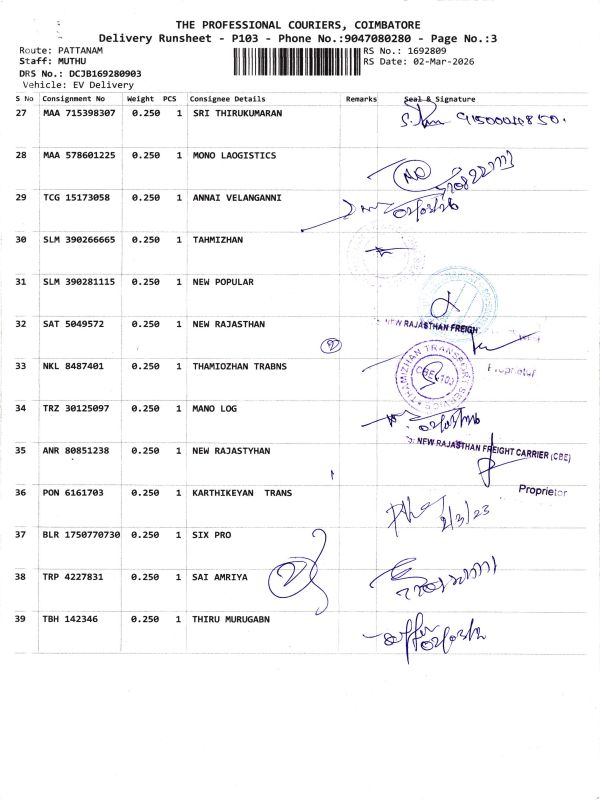 THE PROFESSIONAL COURIERS, COIMBATORE
Delivery Runsheet - P103 - Phone No.:9047080280 - Page No.:3
Route: PATTANAM RS No.: 1692809
Staff: MUTHU RS Date: 02-Mar-2026
DRS No.: DCJB169280903
Vehicle: EV Delivery
S No Consignment No Weight PCS Consignee Details Remarks Seal & Signature
27 MAA 715398307 0.250 1 SRI THIRUKUMARAN
28 MAA 578601225 0.250 1 MONO LAOGISTICS
29 TCG 15173058 0.250 1 ANNAI VELANGANNI
30 SLM 390266665 0.250 1 TAHMIZHAN
31 SLM 390281115 0.250 1 NEW POPULAR
32 SAT 5049572 0.250 1 NEW RAJASTHAN NEW RAJASTHAN FREIGH
2
33 NKL 8487401 0.250 1 THAMIOZHAN TRABNS THAMIZHAN TRANSPORT SERVICE Proprietor
34 TRZ 30125097 0.250 1 MANO LOG
35 ANR 80851238 0.250 1 NEW RAJASTYHAN NEW RAJASTHAN FREIGHT CARRIER (CBE)
36 PON 6161703 0.250 1 KARTHIKEYAN TRANS Proprietor
2/3/23
37 BLR 1750770730 0.250 1 SIX PRO
38 TRP 4227831 0.250 1 SAI AMRIYA
39 TBH 142346 0.250 1 THIRU MURUGABN